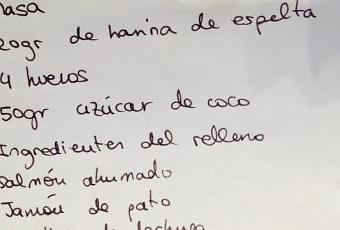 asa
20gr de harina de espelta
4 huevos
50gr azúcar de coco
Ingredientes del relleno
Salmón ahumado
Jamón de pato
de lechuga